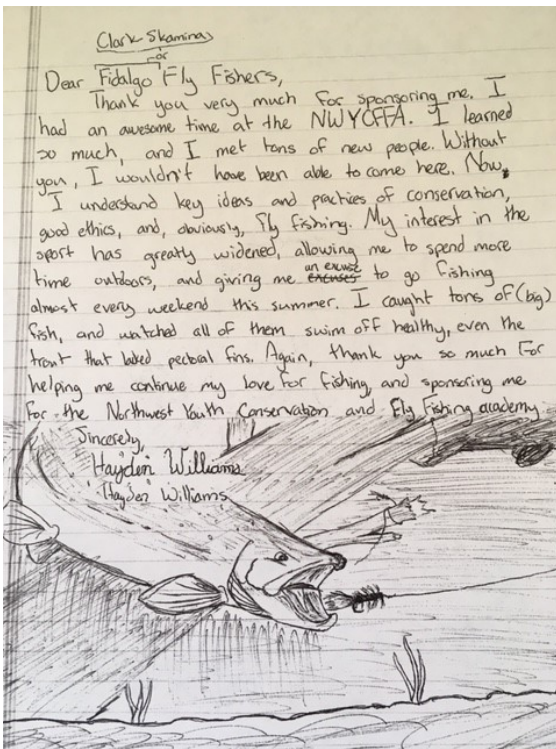 Clark Skamina
or
Dear Fidalgo Fly Fishers,
Thank you very much for sponsoring me. I
had an awesome time at the NWYCFFA. I learned
so much, and I met tons of new people. Without
you, I wouldn't have been able to come here. Now,
I understand key ideas and practices of conservation,
good ethics, and, obviously, fly fishing. My interest in the
sport has greatly widened, allowing me to spend more
time outdoors, and giving me an excuse excuses to go fishing
almost every weekend this summer. I caught tons of (big)
fish, and watched all of them swim off healthy, even the
trout that lacked pectoral fins. Again, thank you so much for
helping me continue my love for fishing, and sponsoring me
for the Northwest Youth Conservation and Fly Fishing academy
Sincerely,
Hayden Williams
"Hayden" Williams